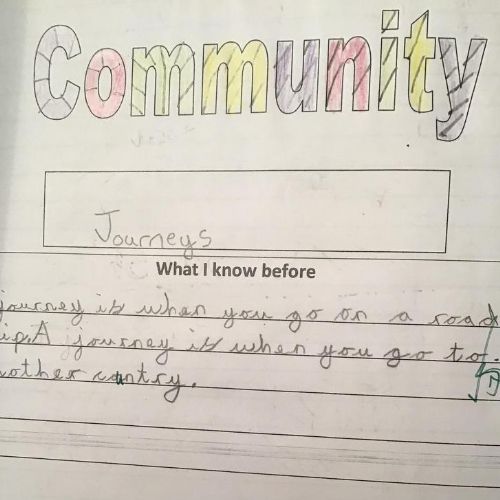 Community
Journeys
What I know before
journey is when you go on a road
ip. A journey is when you go to
nother cuntry.